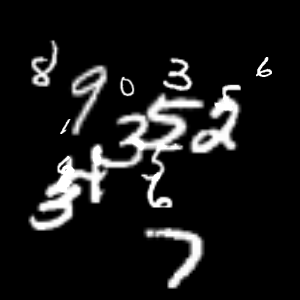 8 9 0 3 5 6
1 3 5 2
3 4 5
6
7